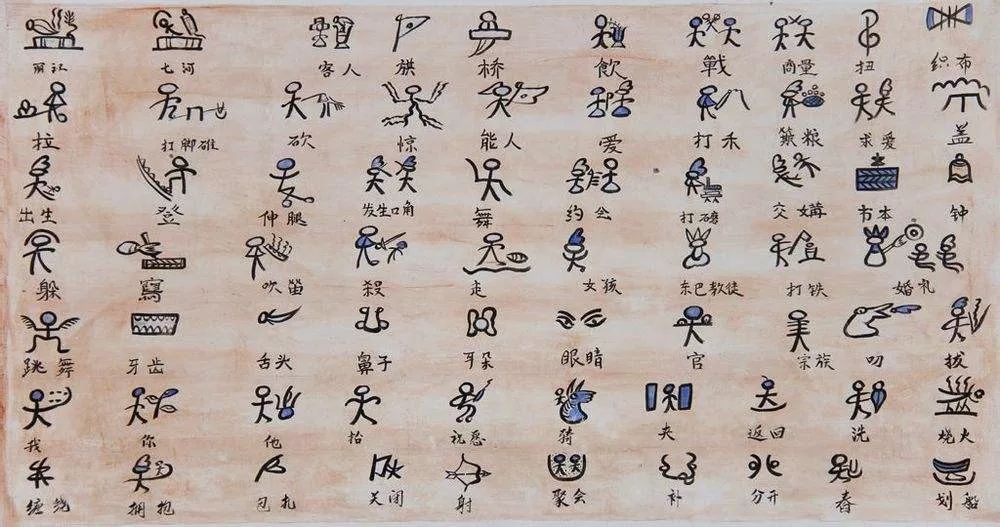 丽江 七河 客人 旗 桥 飲 戰 商量 扭 织布
拉 打脚碓 砍 惊 能人 爱 打禾 簸粮 求爱 盖
出生 登 伸腿 发生口角 舞 约会 打碡 交媾 书本 钟
躲 寫 吹笛 殺 走 女孩 东巴教徒 打铁 婚礼
跳舞 牙齿 舌头 鼻子 耳朵 眼睛 官 宗族 叨 拔
我 你 他 抬 祝愿 骑 夹 返回 洗 烧火
缠绕 拥抱 包扎 关闭 射 聚会 补 分开 舂 划船